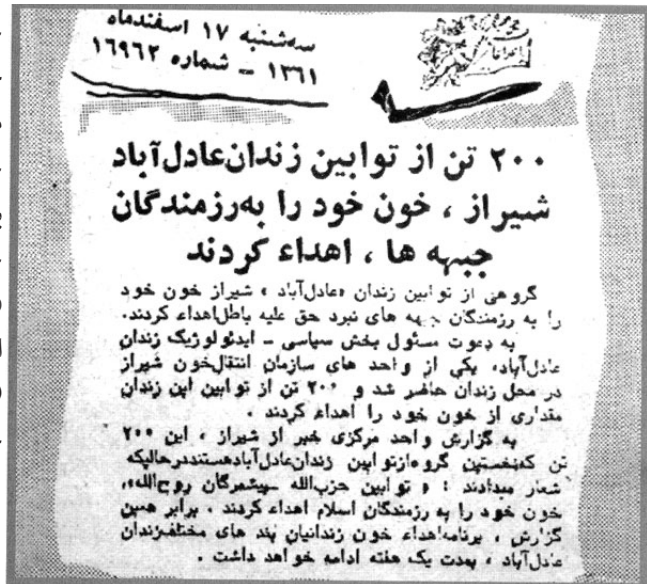 سه‌شنبه ۱۷ اسفندماه
۱۳۶۱ – شماره ۱۶۹۶۲
۲۰۰ تن از توابین زندان عادل‌آباد
شیراز ، خون خود را به‌رزمندگان
جبهه ها ، اهداء کردند
گروهی از توابین زندان «عادل‌آباد» شیراز خون خود
را به رزمندگان جبهه های نبرد حق علیه باطل اهداء کردند.
به دعوت مسئول بخش سیاسی – ایدئولوژیک زندان
عادل‌آباد، یکی از واحد های سازمان انتقال خون شیراز
در محل زندان حاضر شد و ۲۰۰ تن از توابین این زندان
مقداری از خون خود را اهداء کردند .
به گزارش واحد مرکزی خبر از شیراز ، این ۲۰۰
تن که‌نخستین گروه ازتوابین زندان‌عادل‌آباد هستند درحالیکه
شعار میدادند : « توابین حزب‌الله پیشمرگان روح‌الله»،
خون خود را به رزمندگان اسلام اهداء کردند . برابر همین
گزارش ، برنامه‌اهداء خون زندانیان بند های مختلف‌زندان
عادل‌آباد ، بمدت یک هفته ادامه خواهد داشت .